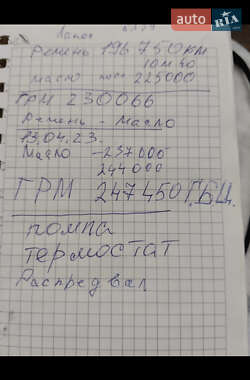 auto RIA
.com
Ремень 196 750 км
10w40
масло 225000
ГРМ 230066
Ремень - масло
13.04.23.
Масло - 237000
244000
ГРМ 247450 ГБЦ
помпа
термостат
Распредвал